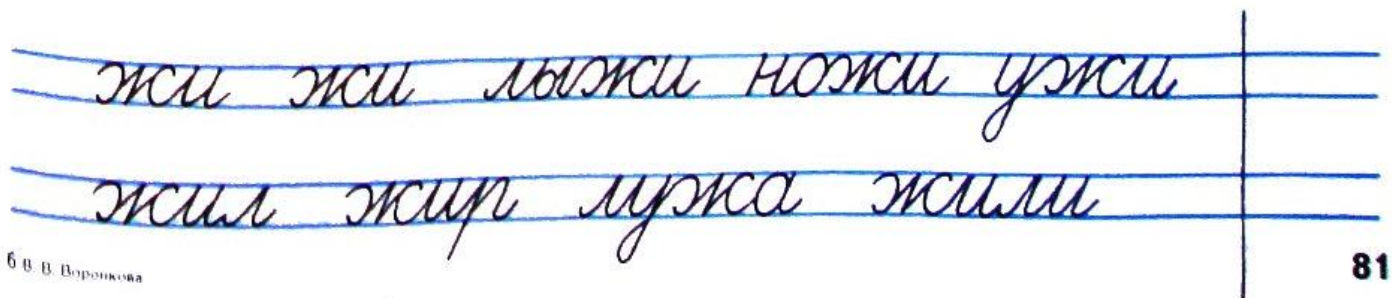 жи жи лыжи ножи ужи
жил жир лужа жили
6 В. В. Воронкова
81